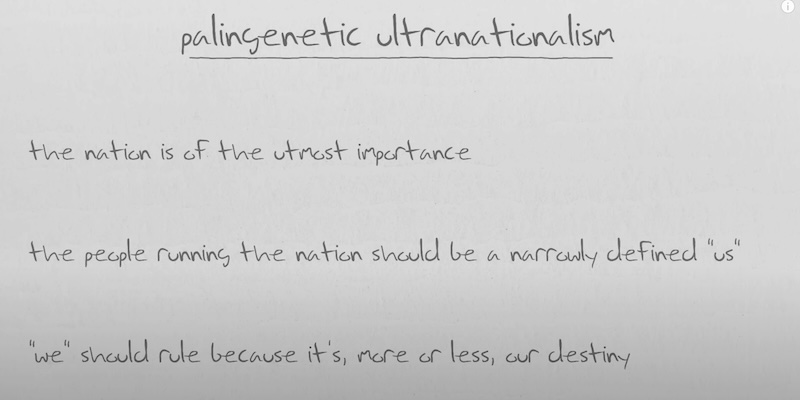 palingenetic ultranationalism
the nation is of the utmost importance
the people running the nation should be a narrowly defined "us"
"we" should rule because it's, more or less, our destiny